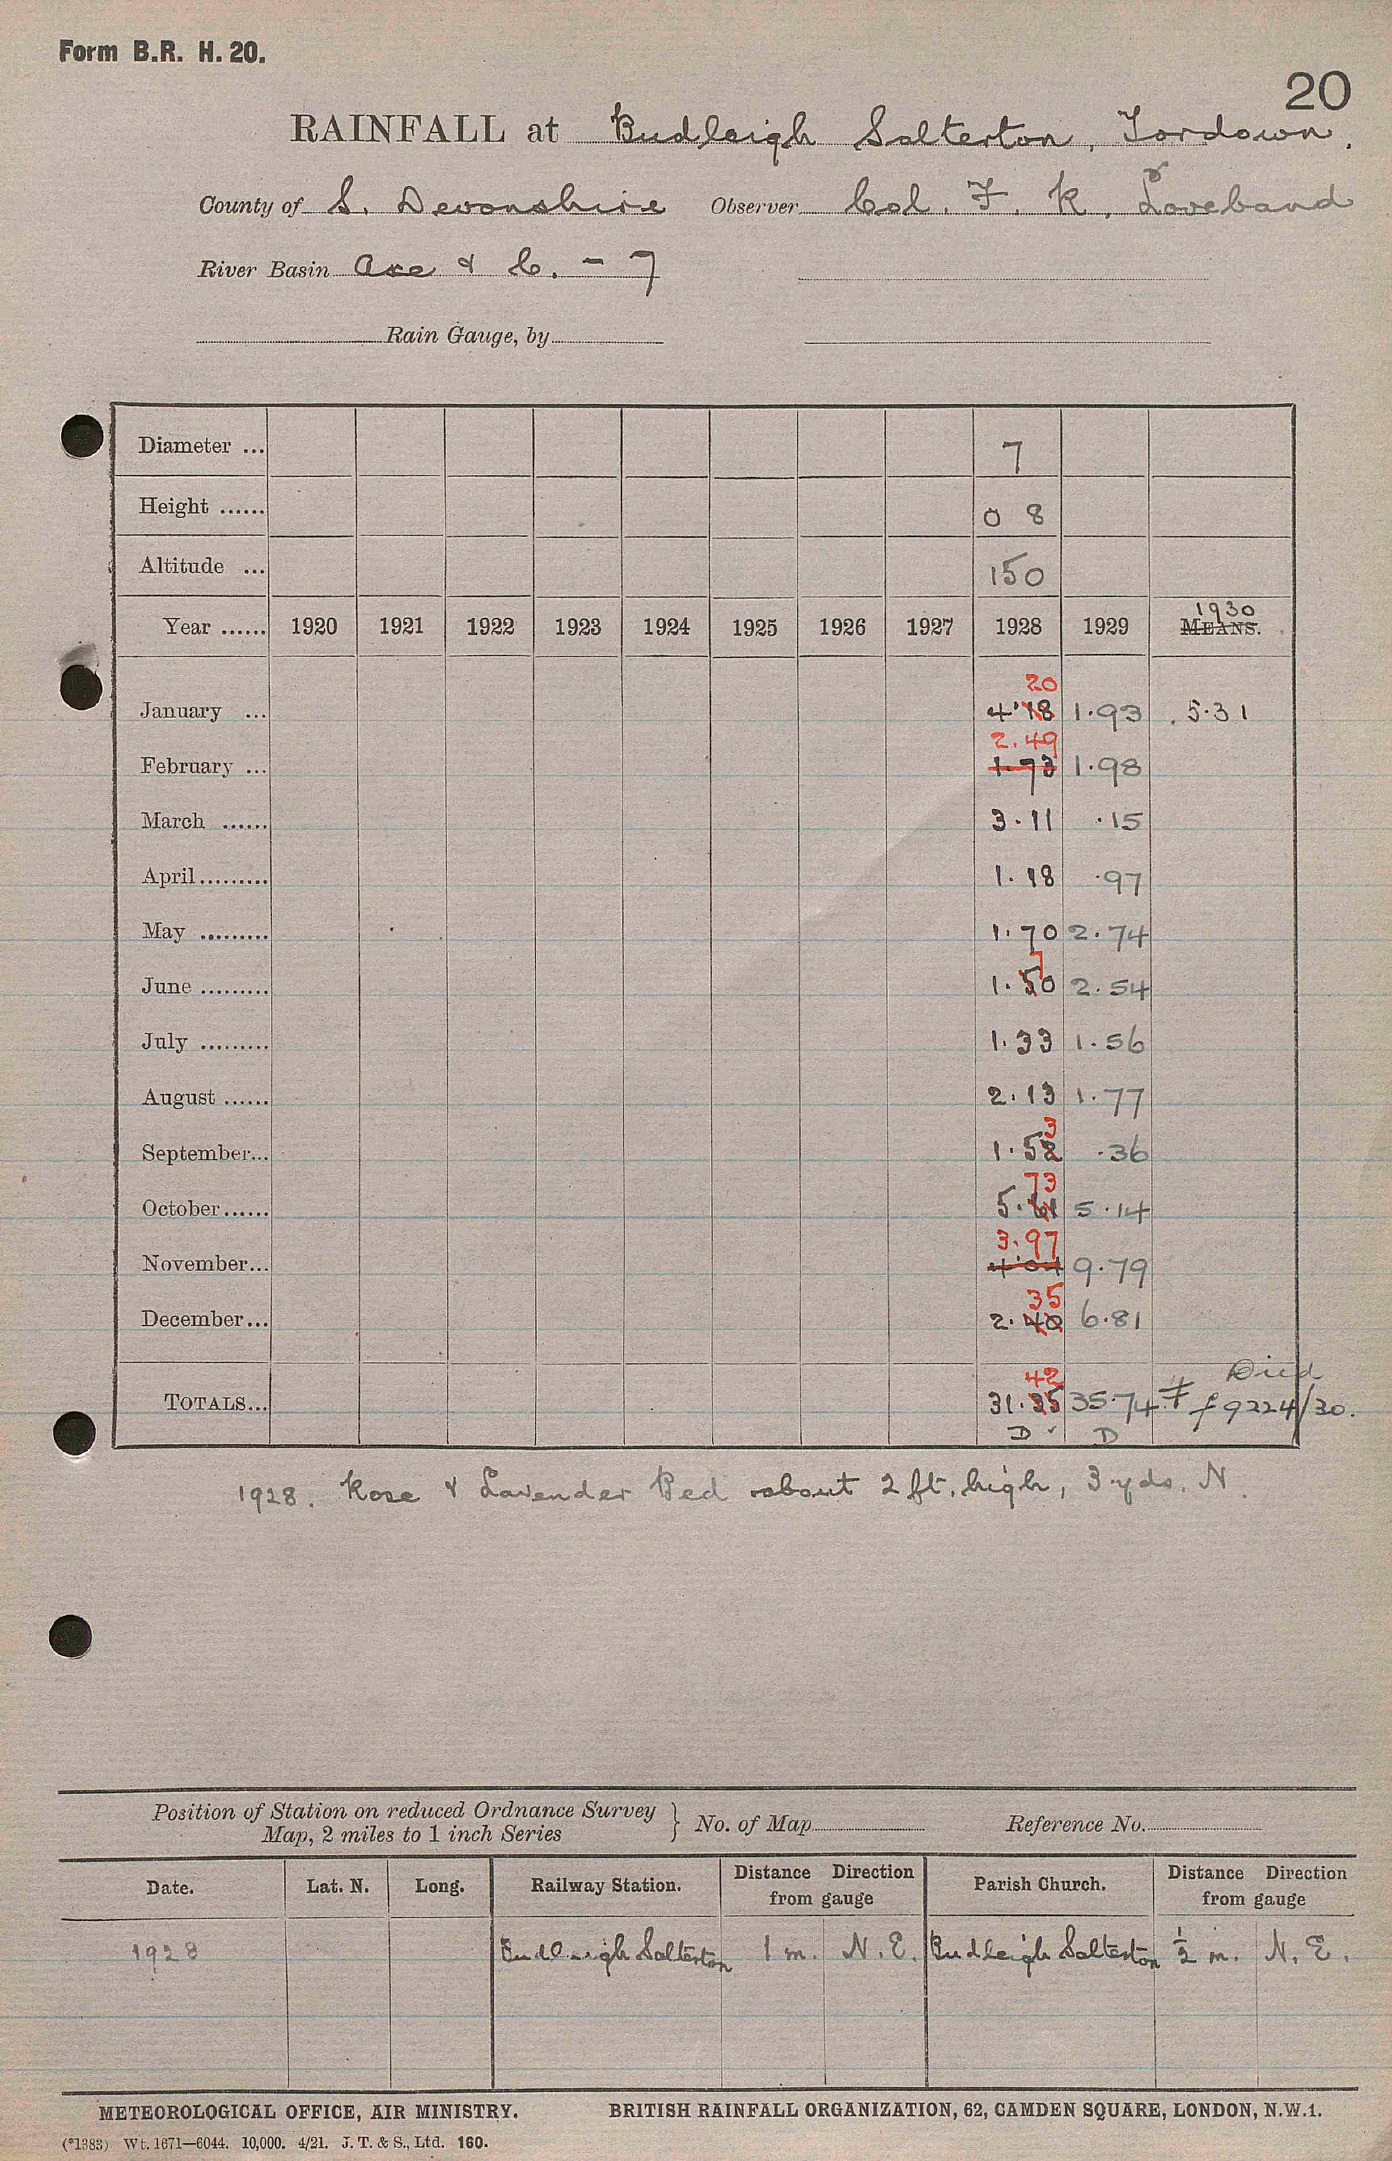 Form B.R. H. 20.
20
RAINFALL at Budleigh Salterton, Tordown.
County of S. Devonshire Observer Col. F. K. Loveband
River Basin Axe & C. - 7
Rain Gauge, by
Diameter ... 7
Height ...... 0 8
Altitude ... 150
1930
Year ...... 1920 1921 1922 1923 1924 1925 1926 1927 1928 1929 MEANS.
20
January ... 4.18 1.93 5.31
2.49
February ... 1.73 1.98
March ...... 3.11 .15
April......... 1.18 .97
May ......... 1.70 2.74
7
June ......... 1.50 2.54
July ......... 1.33 1.56
August ...... 2.13 1.77
3
September... 1.52 .36
73
October...... 5.61 5.14
3.97
November... 4.04 9.79
35
December... 2.40 6.81
42 Died
TOTALS... 31.35 35.74 ‡ f 9224/30.
D D
1928. Rose & Lavender Bed about 2 ft. high, 3 yds. N.
Position of Station on reduced Ordnance Survey
Map, 2 miles to 1 inch Series } No. of Map Reference No.
Date. Lat. N. Long. Railway Station. Distance Direction from gauge Parish Church. Distance Direction from gauge
1928 Budleigh Salterton 1 m. N.E. Budleigh Salterton ½ m. N.E.
METEOROLOGICAL OFFICE, AIR MINISTRY. BRITISH RAINFALL ORGANIZATION, 62, CAMDEN SQUARE, LONDON, N.W.1.
(*1383) Wt. 1671—6044. 10,000. 4/21. J. T. & S., Ltd. 160.